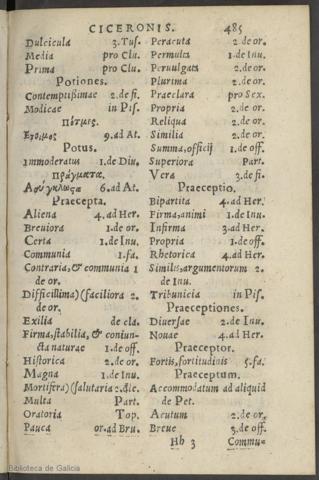 CICERONIS. 485
Dulcicula 3. Tus.
Media pro Clu.
Prima pro Clu.
Potiones.
Contemptißimae 2. de fi.
Modicae in Pis.
Πότμος.
Ετοιμος 9. ad At.
Potus.
Immoderatus 1. de Diu.
Πράγματα.
6. ad At.
Praecepta.
Aliena 4. ad Her.
Breuiora 1. de or.
Certa 1. de Inu.
Communia 1. fa.
Contraria, & communia 1
de or.
Difficillima) (faciliora 2.
de or.
Exilia de cla.
Firma, stabilia, & coniun-
cta naturae 1. de off.
Historica 2. de or.
Magna 1. de Inu.
Mortifera) (salutaria 2. dic.
Multa Part.
Oratoria Top.
Pauca or. ad Bru.
Peracuta 2. de or.
Permulta 1. de Inu.
Peruulgata 2. de or.
Plurima 2. de or.
Praeclara pro Sex.
Propria 2. de or.
Reliqua 2. de or.
Similia 2. de or.
Summa, officij 1. de off.
Superiora Part.
Vera 3. de fi.
Praeceptio.
Bipartita 4. ad Her.
Firma, animi 1. de Inu.
Infirma 3. ad Her.
Propria 1. de off.
Rhetorica 4. ad Her.
Similis, argumentorum 2.
de Inu.
Tribunicia in Pis.
Praeceptiones.
Diuersae 2. de Inu.
Nouae 4. ad Her.
Praeceptor.
Fortis, fortitudinis 5. fa.
Praeceptum.
Accommodatum ad aliquid
de Pet.
Acutum 2. de or.
Breue 3. de off.
Hh 3 Commu-
Biblioteca de Galicia